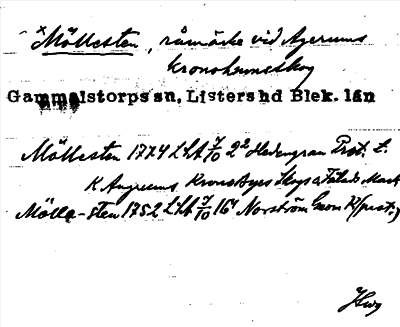 × Möllesten, råmärke vid Agerums
Kronohumleskog
Gammalstorps sn, Listers hd Blek. län
Möllesten 1774 LHt 7/10 2² Hedengran Prot. t.
K Angerums KronoByes Skogs o Fälads Mark
Möllq-sten 1752 LHt 7/10 16⁴ Norström Geom K/prot.)